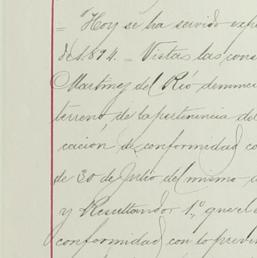 "Hoy se ha servido exp
de 1.894. - Vistas las cons
Martinez del Rió denunci
terreno de la pertenencia del
cación de conformidad co
de 30 de Julio del mismo a
y Resultando 1º que el
conformidad con lo previ